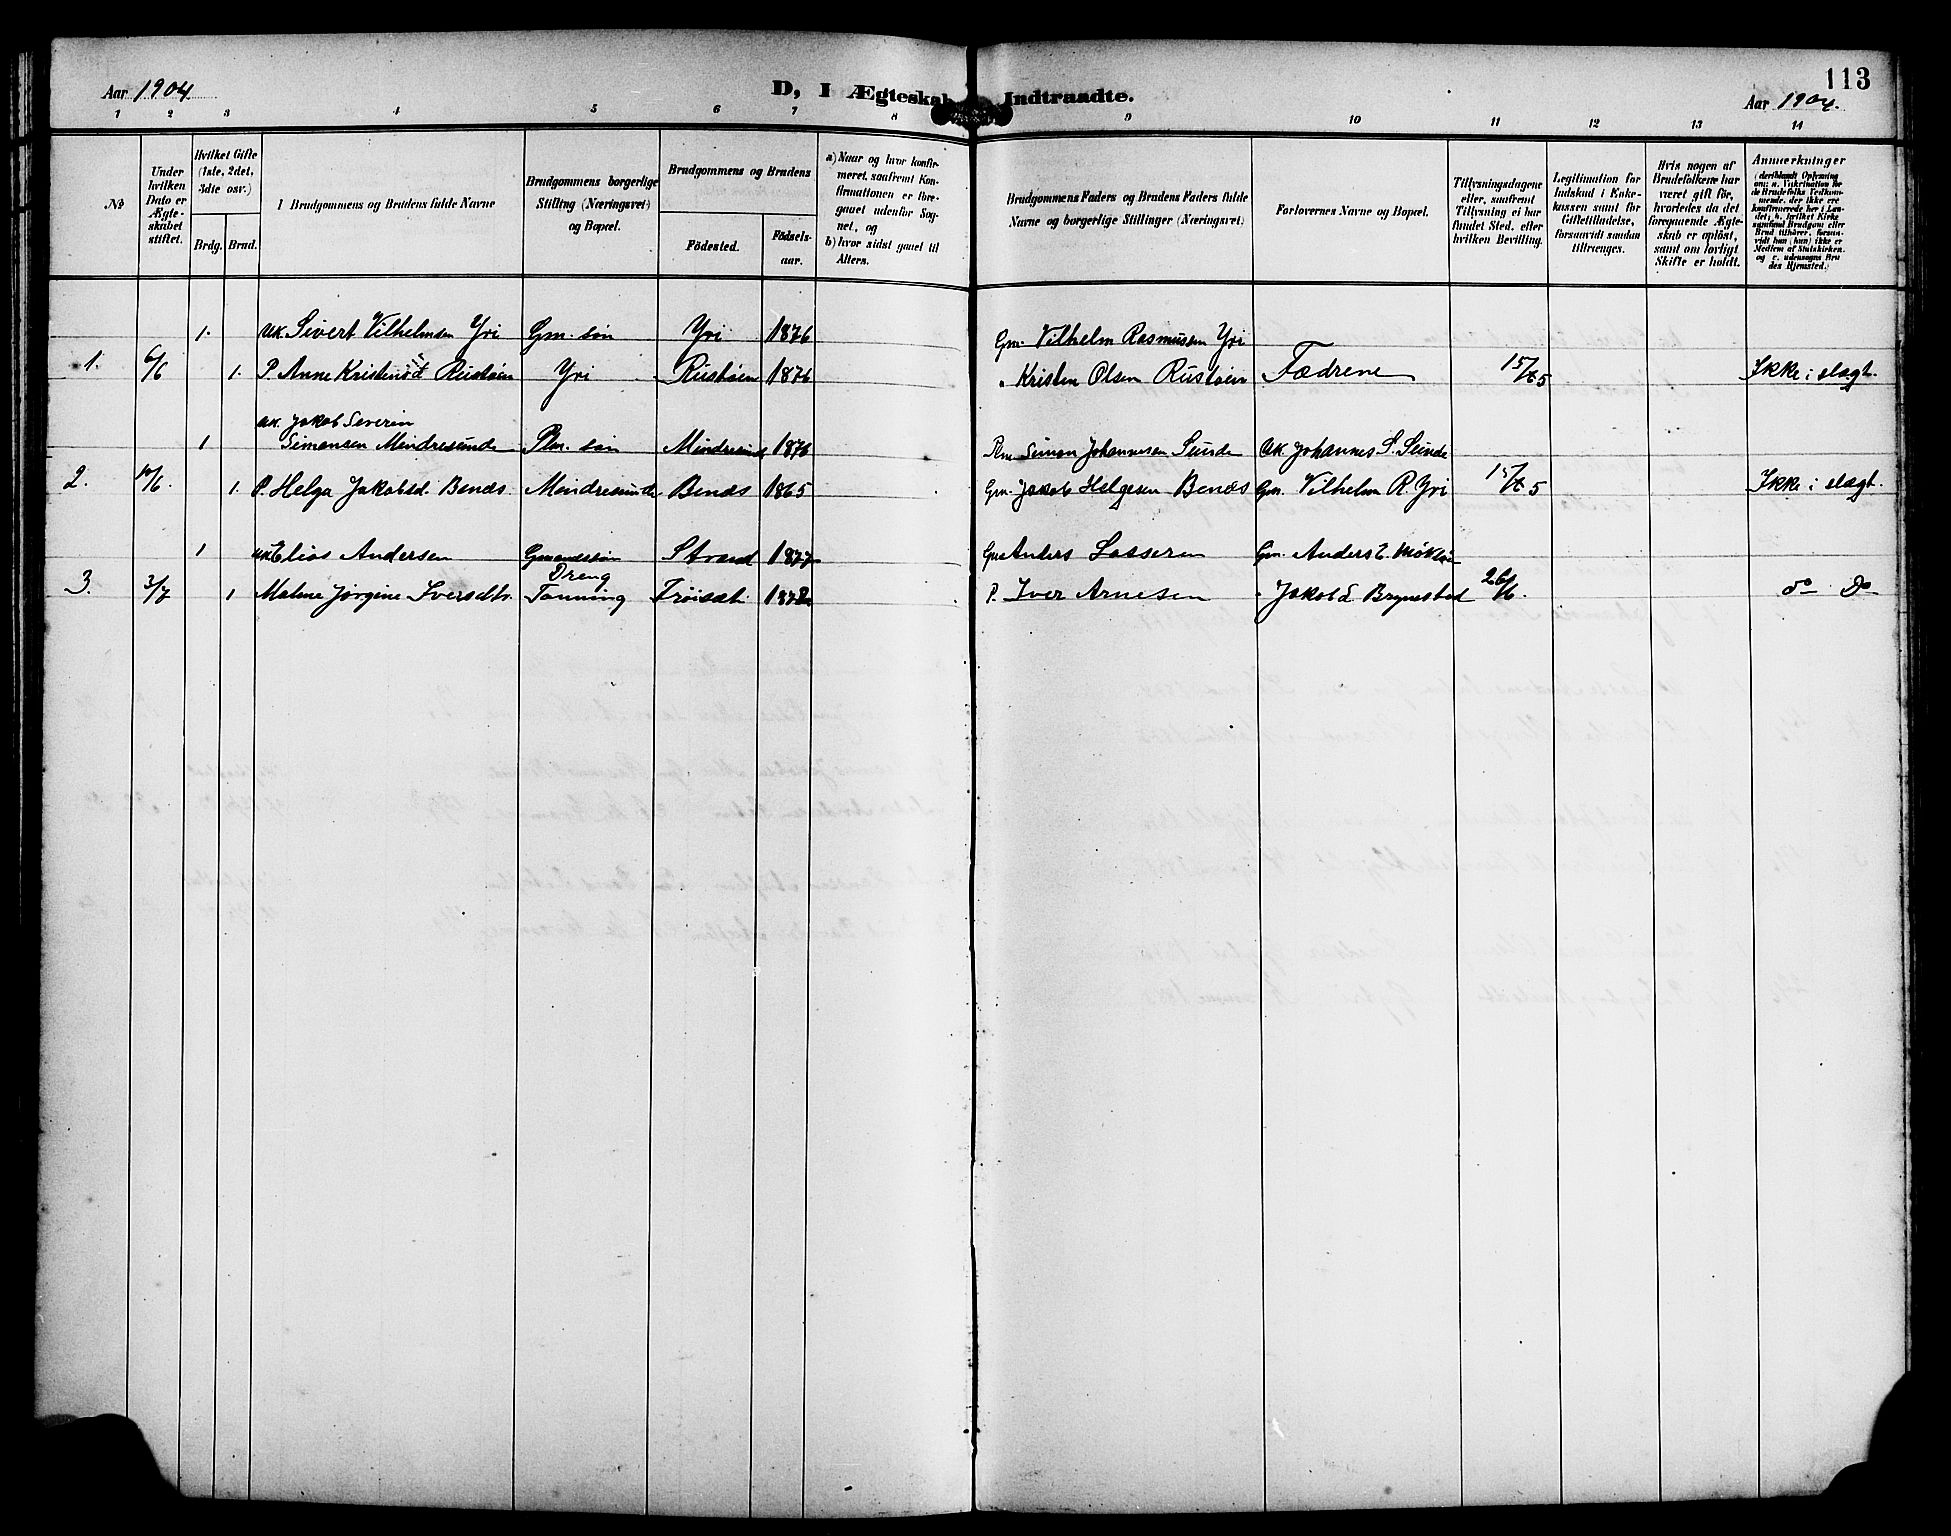 Aar 1904.
D, I Ægteskab Indtraadte.
113
Aar 1904.
1 2 3 4 5 6 7 8 9 10 11 12 13 14
No
Under hvilken Dato er Ægteskabet stiftet.
Hvilket Gifte (1ste, 2det, 3die osv.)
Brdg. Brud.
Brudgommens og Brudens fulde Navne
Brudgommens borgerlige Stilling (Næringsvei) og Bopæl.
Brudgommens og Brudens
Födested.
Födselsaar.
a) Naar og hvor konfirmeret, saafremt Konfirmationen er foregaaet udenfor Sognet, og
b) hvor sidst gaaet til Alters.
Brudgommens Faders og Brudens Faders fulde Navne og borgerlige Stillinger (Næringsvei)
Forlovernes Navne og Bopæl.
Tillysningsdagene eller, saafremt Tillysning ei har fundet Sted, efter hvilken Bevilling.
Legitimation for Indskud i Enkekassen samt for Giftetilladelse, forsaavidt saadan tiltrænges.
Hvis nogen af Brudefolkene har været gift før, hvorledes da det foregaaende Ægteskab er opløst, samt om lovligt Skifte er holdt.
Anmerkninger
1. uk. Sivert Vilhelmsen Yri Gm. søn Yri 1876 Gm. Vilhelm Rasmussen Yri
1. 6/6 1. P. Anne Kristensd Rustøen Yri Rustøen 1876 " Kristen Olsen Rustøen Fædrene 15/5 Ikke i slægt.
uk. Jakob Severin
1 Simonsen Mindresunde Plm. søn Mindresund 1876 Plm Simon Johannesen Sunde uk. Johannes S. Sunde
2. 1. P. Helga Jakobsd. Benæs. Mindresunde Benæs 1865 Gm. Jakob Helgesen Benæs Gm. Vilhelm R. Yri 15/5 Ikke i slægt.
1 uk Elias Andersen Gmandssøn Strand 1877 Gm Anders Lassesen Gm. Anders
Dreng
3. 3/7 1 Malene Jørgine Iversdtr. Tonning Frøisæt 1878 P. Iver Arnesen Jakob d Brynestad 26/6. do Do